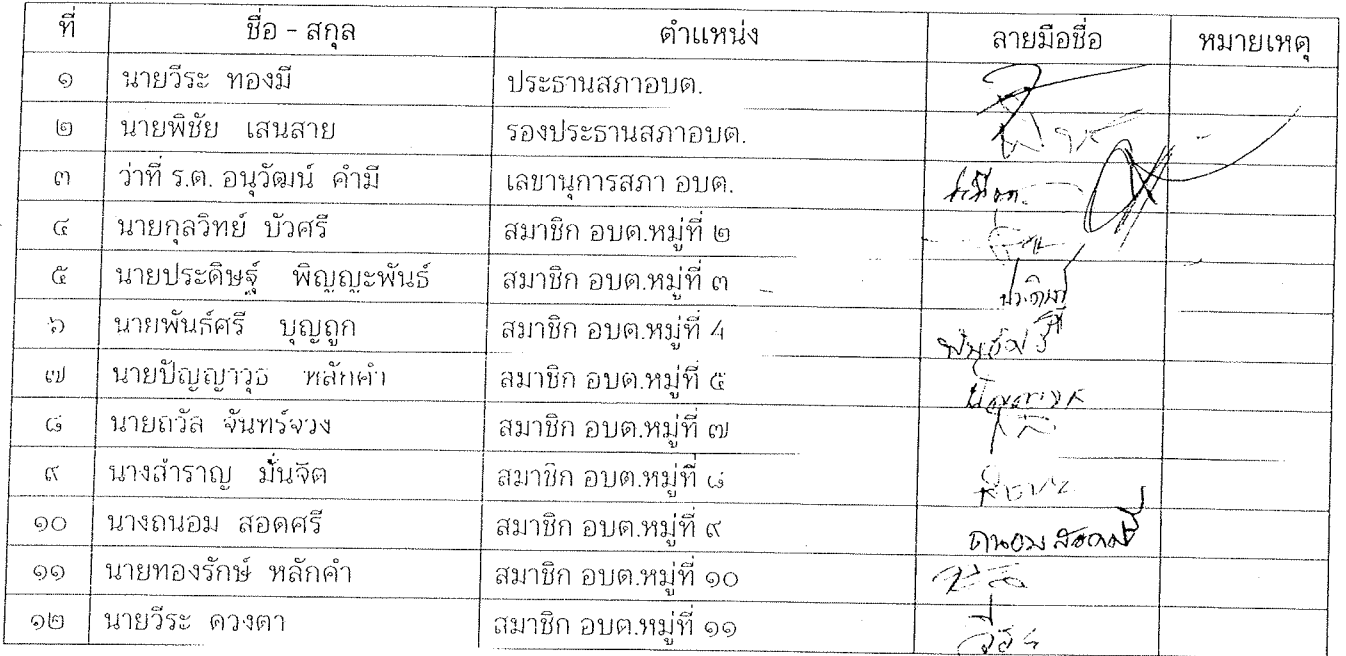 ที่ ชื่อ - สกุล ตำแหน่ง ลายมือชื่อ หมายเหตุ
๑ นายวีระ ทองมี ประธานสภาอบต.
๒ นายพิชัย เสนสาย รองประธานสภาอบต.
๓ ว่าที่ ร.ต. อนุวัฒน์ คำมี เลขานุการสภา อบต.
๔ นายกุลวิทย์ บัวศรี สมาชิก อบต.หมู่ที่ ๒
๕ นายประดิษฐ์ พิญญะพันธ์ สมาชิก อบต.หมู่ที่ ๓ ประดิษฐ์
๖ นายพันธ์ศรี บุญถูก สมาชิก อบต.หมู่ที่ 4 พันธ์ศรี
๗ นายปัญญาวุธ หลักคำ สมาชิก อบต.หมู่ที่ ๕
๘ นายถวัล จันทร์จวง สมาชิก อบต.หมู่ที่ ๗
๙ นางสำราญ มั่นจิต สมาชิก อบต.หมู่ที่ ๘
๑๐ นางถนอม สอดศรี สมาชิก อบต.หมู่ที่ ๙ ถนอม สอดศรี
๑๑ นายทองรักษ์ หลักคำ สมาชิก อบต.หมู่ที่ ๑๐
๑๒ นายวีระ ดวงตา สมาชิก อบต.หมู่ที่ ๑๑ วีระ